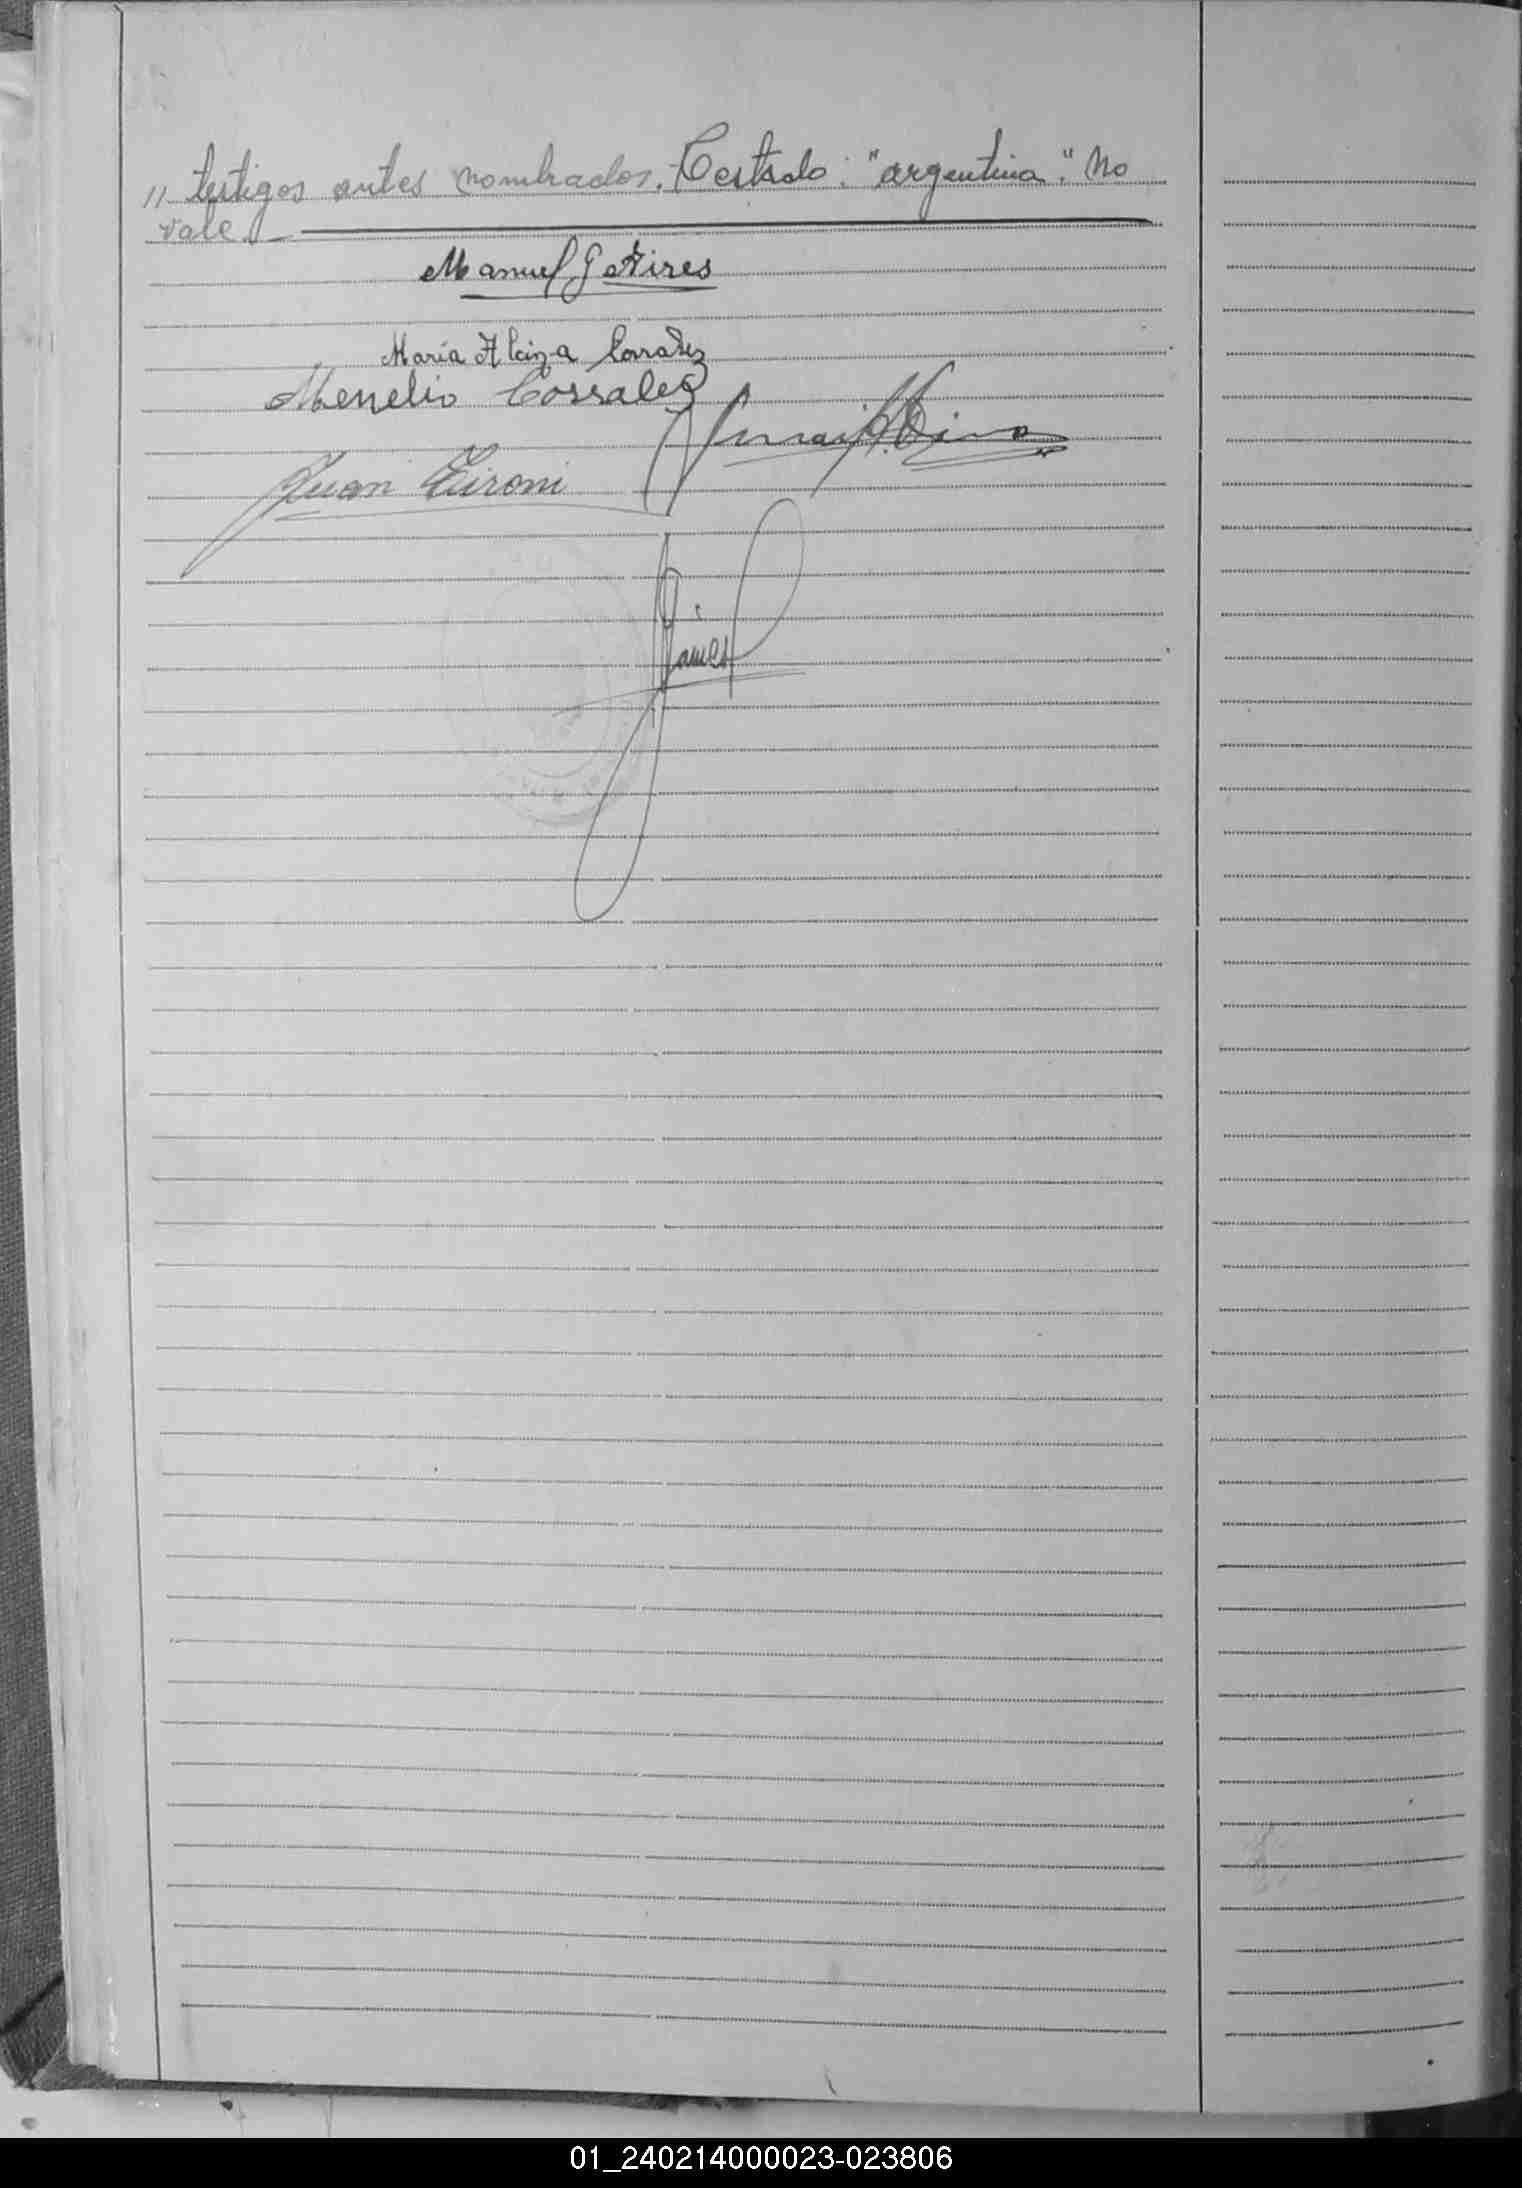 // testigos antes nombrados. Testado: "argentina". No
vale.
Manuel G Aires
María Alcira Corrales
Menelio Corrales
Juan Tironi
01_240214000023-023806